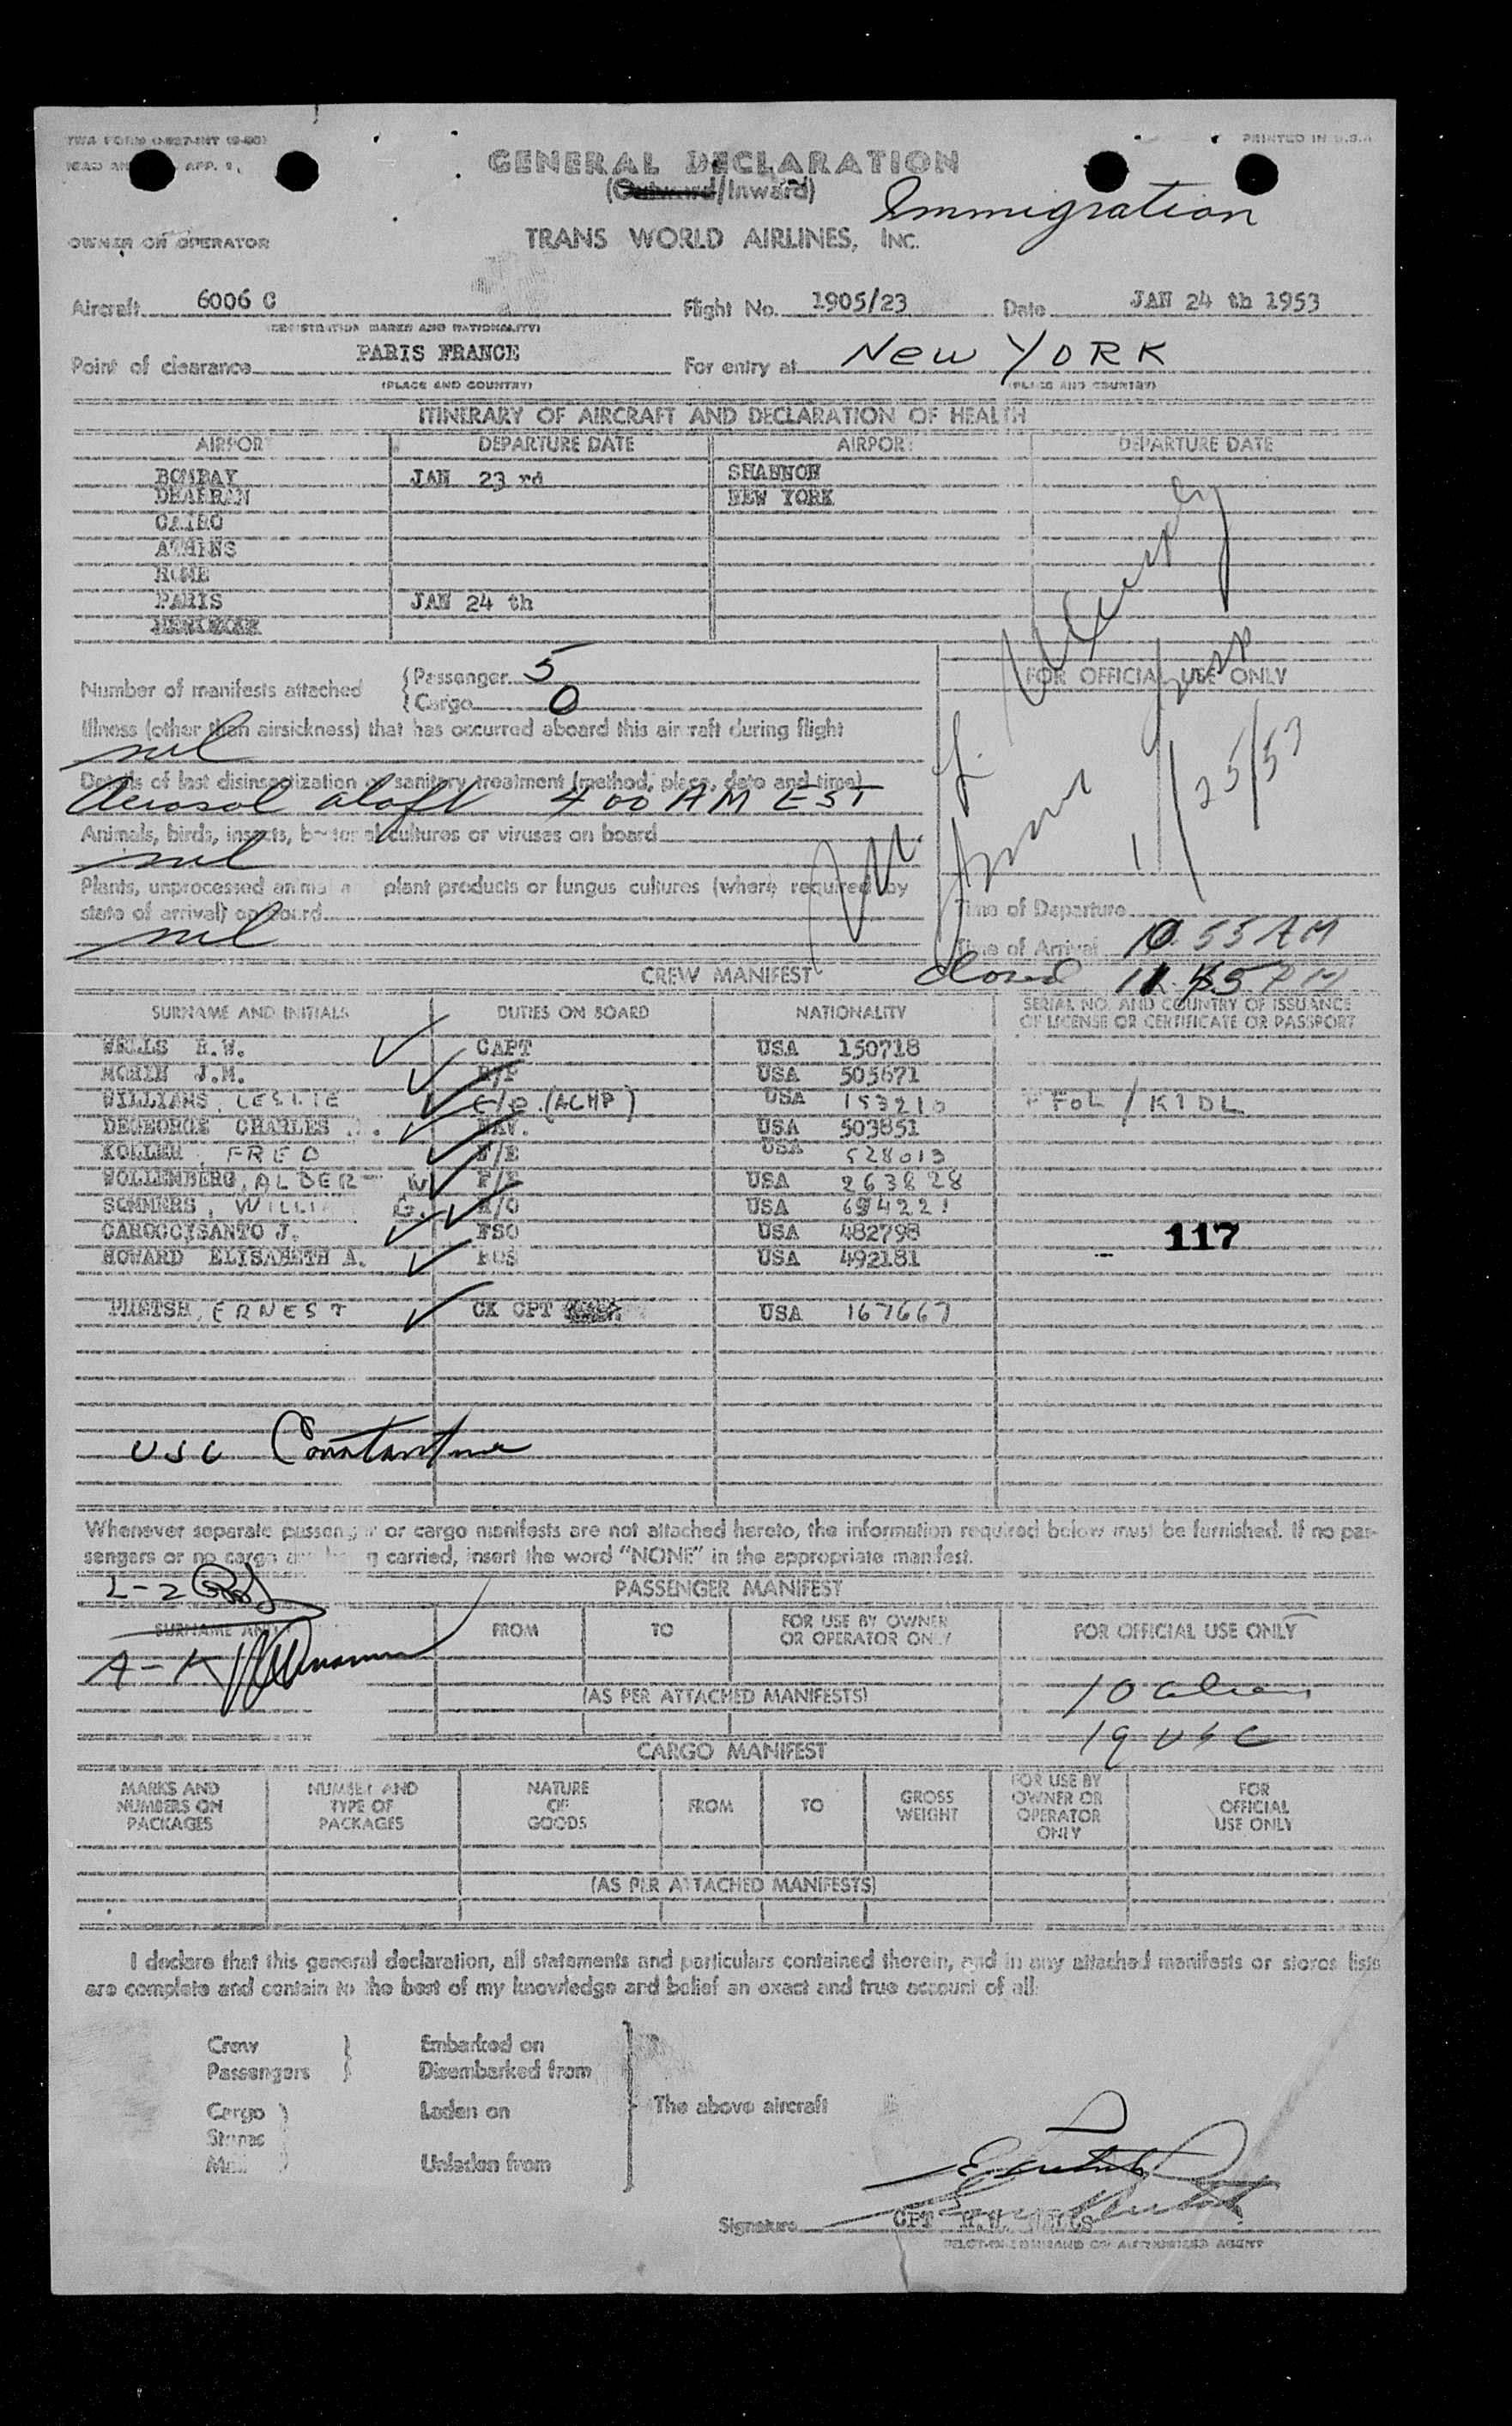 PRINTED IN U.S.A
GENERAL DECLARATION
(Outward/Inward)
Immigration
OWNER OR OPERATOR
TRANS WORLD AIRLINES, INC.
Aircraft 6006 C Flight No. 1905/23 Date JAN 24 th 1953
(REGISTRATION MARKS AND NATIONALITY)
Point of clearance PARIS FRANCE For entry at New YORK
(PLACE AND COUNTRY) (PLACE AND COUNTRY)
ITINERARY OF AIRCRAFT AND DECLARATION OF HEALTH
AIRPORT DEPARTURE DATE AIRPORT DEPARTURE DATE
BOMBAY JAN 23 rd SHANNON
DHAHRAN NEW YORK
CAIRO
ATHENS
ROME
PARIS JAN 24 th
Number of manifests attached
Passenger 5
Cargo 0
FOR OFFICIAL USE ONLY
Illness (other than airsickness) that has occurred aboard this aircraft during flight
nil
Details of last disinsectization or sanitary treatment (method, place, date and time)
Aerosol aloft 4 00 AM EST
1/25/53
Animals, birds, insects, bacterial cultures or viruses on board
nil
Plants, unprocessed animal and plant products or fungus cultures (where required by
state of arrival) on board
nil
Time of Departure
Time of Arrival 10 55 AM
CREW MANIFEST
closed
SURNAME AND INITIALS DUTIES ON BOARD NATIONALITY SERIAL NO. AND COUNTRY OF ISSUANCE
OF LICENSE OR CERTIFICATE OR PASSPORT
WELLS CAPT USA 150718
J.M. USA 505671
WILLIAMS, LESLIE (ACMP) USA 153210
DEGEORGE CHARLES NAV. USA 503851
FRED F/E USA 528013
WOLLENBERG, ALBERT W F/E USA 263828
SOMMERS, WILLIAM G. R/O USA 694221
CAROCCISANTO J. FSO USA 482798
117
HOWARD ELISABETH A. USA 492181
ERNEST CK CPT USA 167667
USC Constantine
Whenever separate passenger or cargo manifests are not attached hereto, the information required below must be furnished. If no pas-
sengers or no cargo are being carried, insert the word "NONE" in the appropriate manifest.
L-2
PASSENGER MANIFEST
SURNAME AND FROM TO FOR USE BY OWNER
OR OPERATOR ONLY FOR OFFICIAL USE ONLY
A-K
(AS PER ATTACHED MANIFESTS)
10 aliens
19 USC
CARGO MANIFEST
MARKS AND
NUMBERS ON
PACKAGES
NUMBER AND
TYPE OF
PACKAGES
NATURE
OF
GOODS
FROM
TO
GROSS
WEIGHT
FOR USE BY
OWNER OR
OPERATOR
ONLY
FOR
OFFICIAL
USE ONLY
(AS PER ATTACHED MANIFESTS)
I declare that this general declaration, all statements and particulars contained therein, and in any attached manifests or stores lists
are complete and contain to the best of my knowledge and belief an exact and true account of all:
Crew Embarked on
Passengers Disembarked from
Cargo Laden on The above aircraft
Stores
Mail Unladen from
Signature CPT
PILOT-IN-COMMAND OR AUTHORIZED AGENT